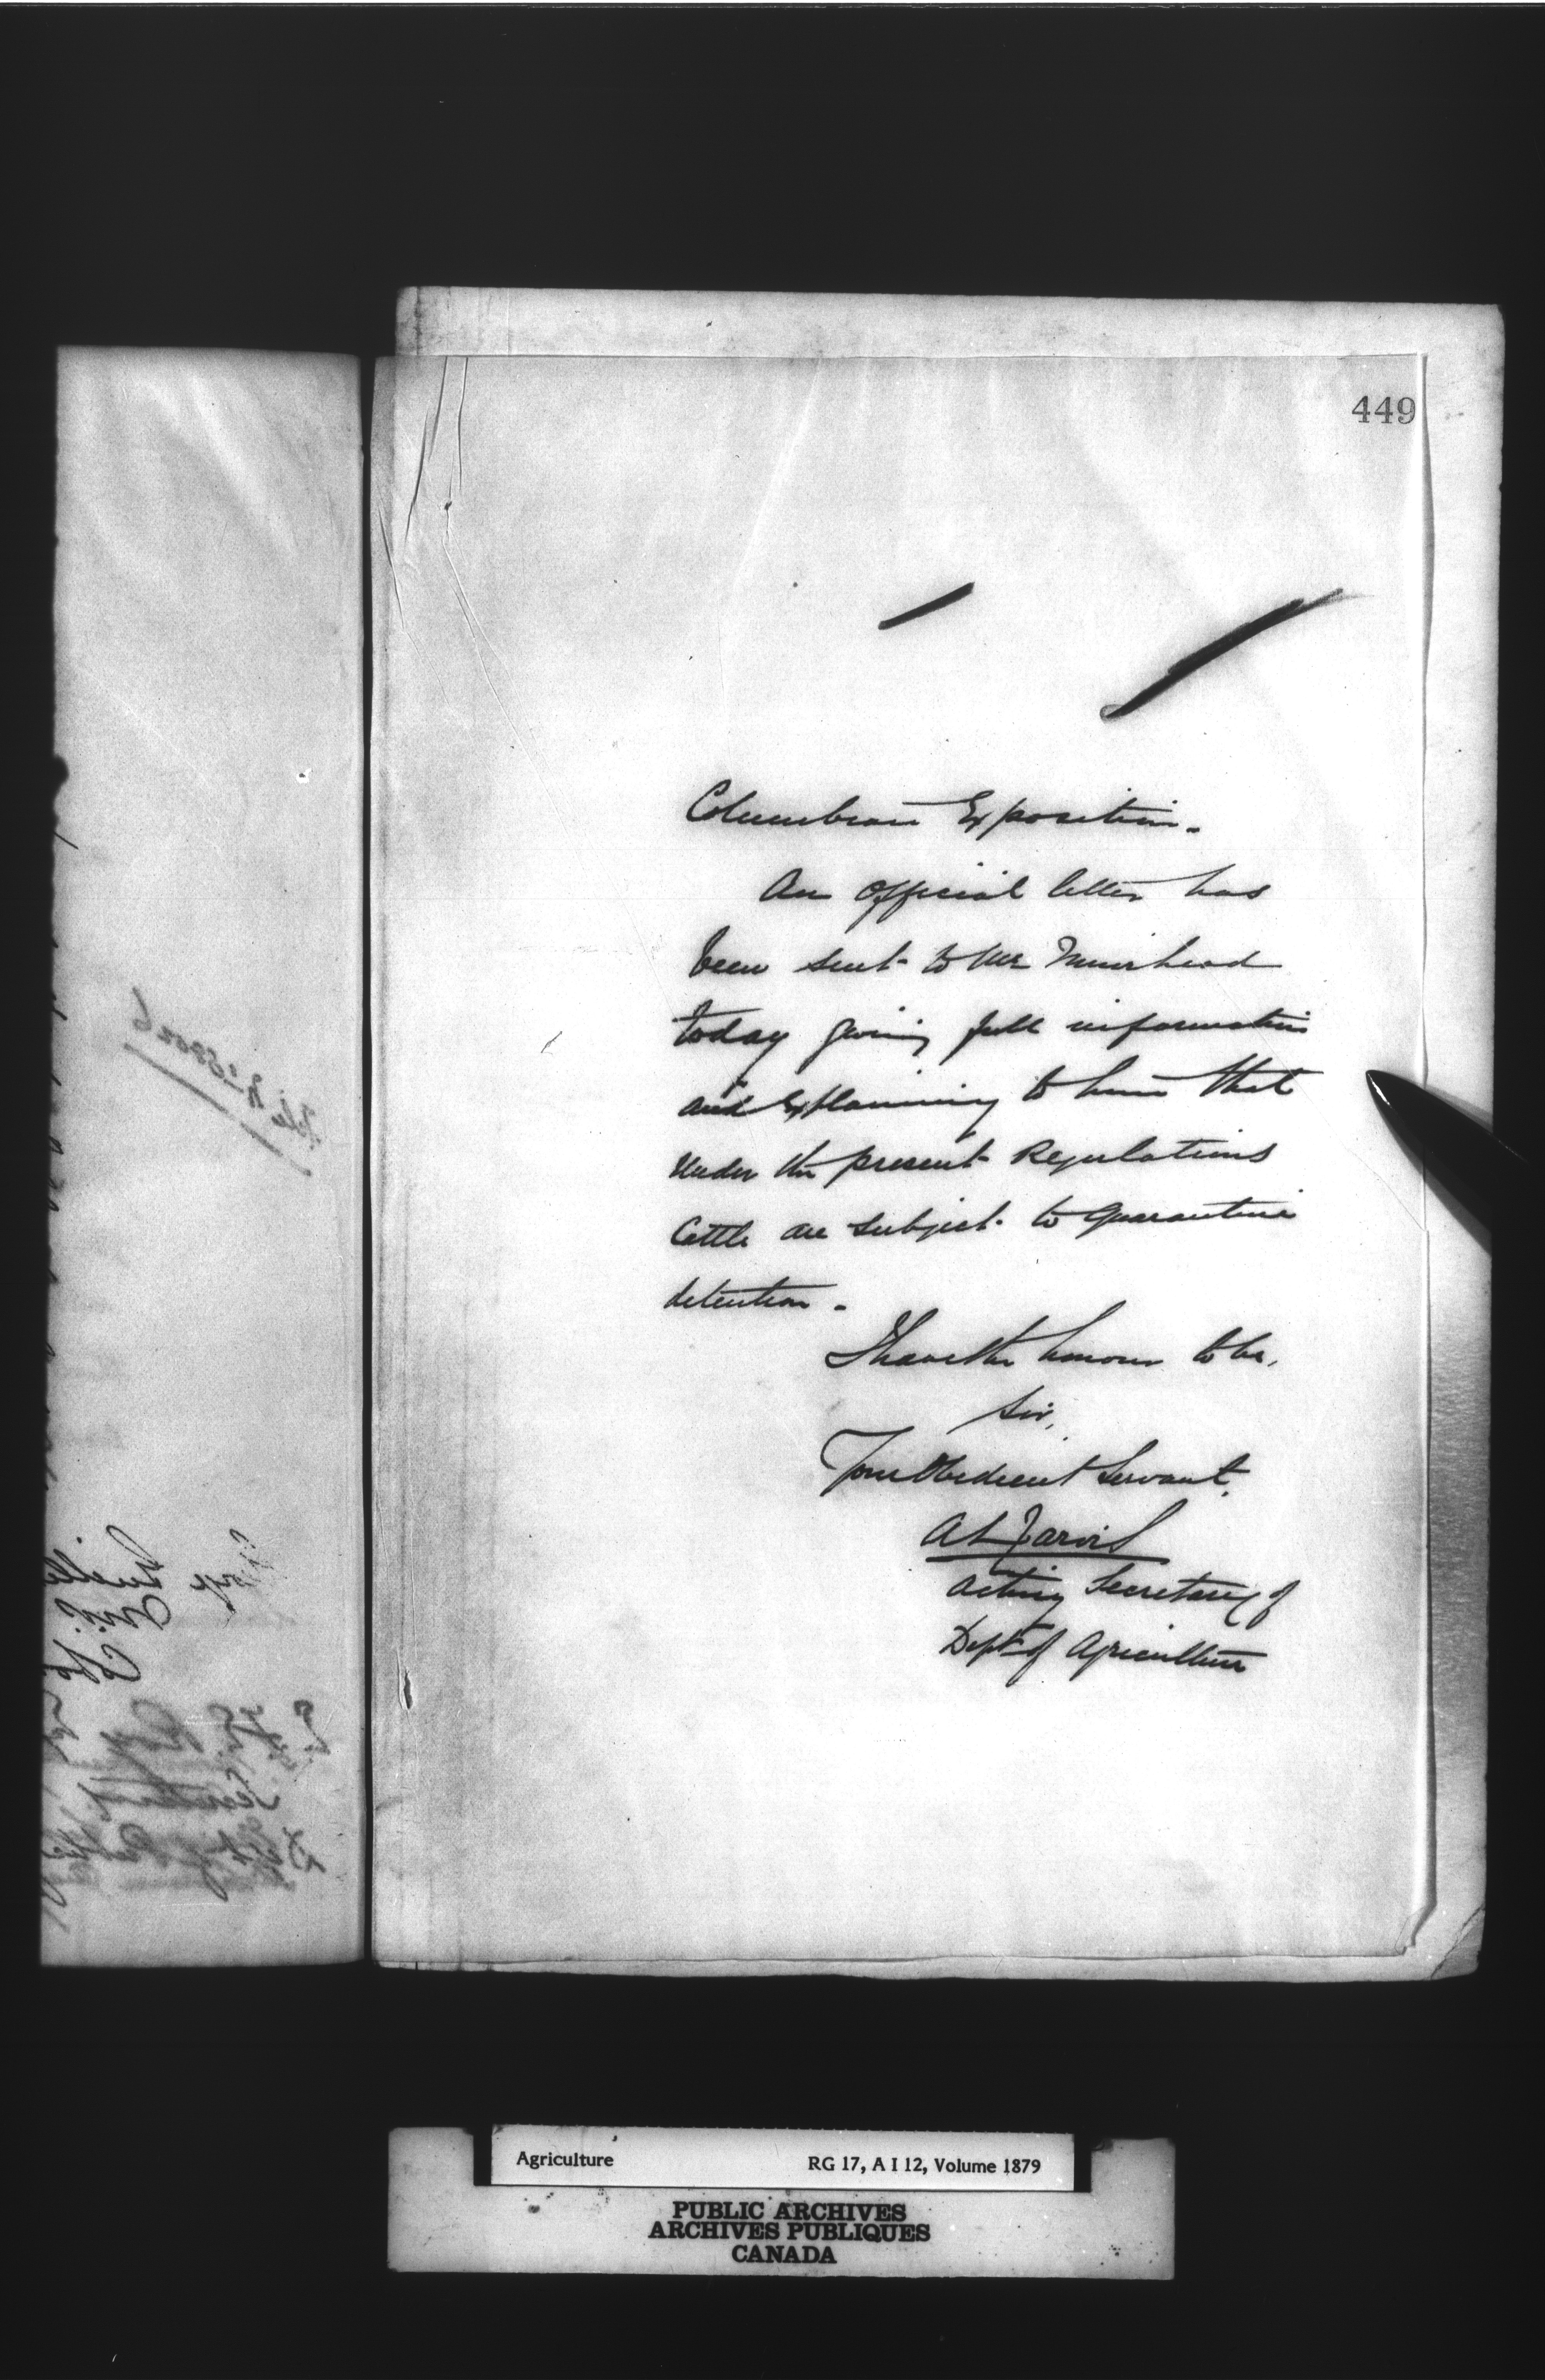 449
Columbian Exposition.
An Official letter has
been sent to Mr Muirhead
today giving full information
and Explaining to him that
under the present Regulations
Cattle are subject to Quarantine
detention.
I have the honour to be,
Sir,
Your Obedient Servant.
A L Jarvis
Acting Secretary of
Dept of Agriculture
Agriculture RG 17, A I 12, Volume 1879
PUBLIC ARCHIVES
ARCHIVES PUBLIQUES
CANADA